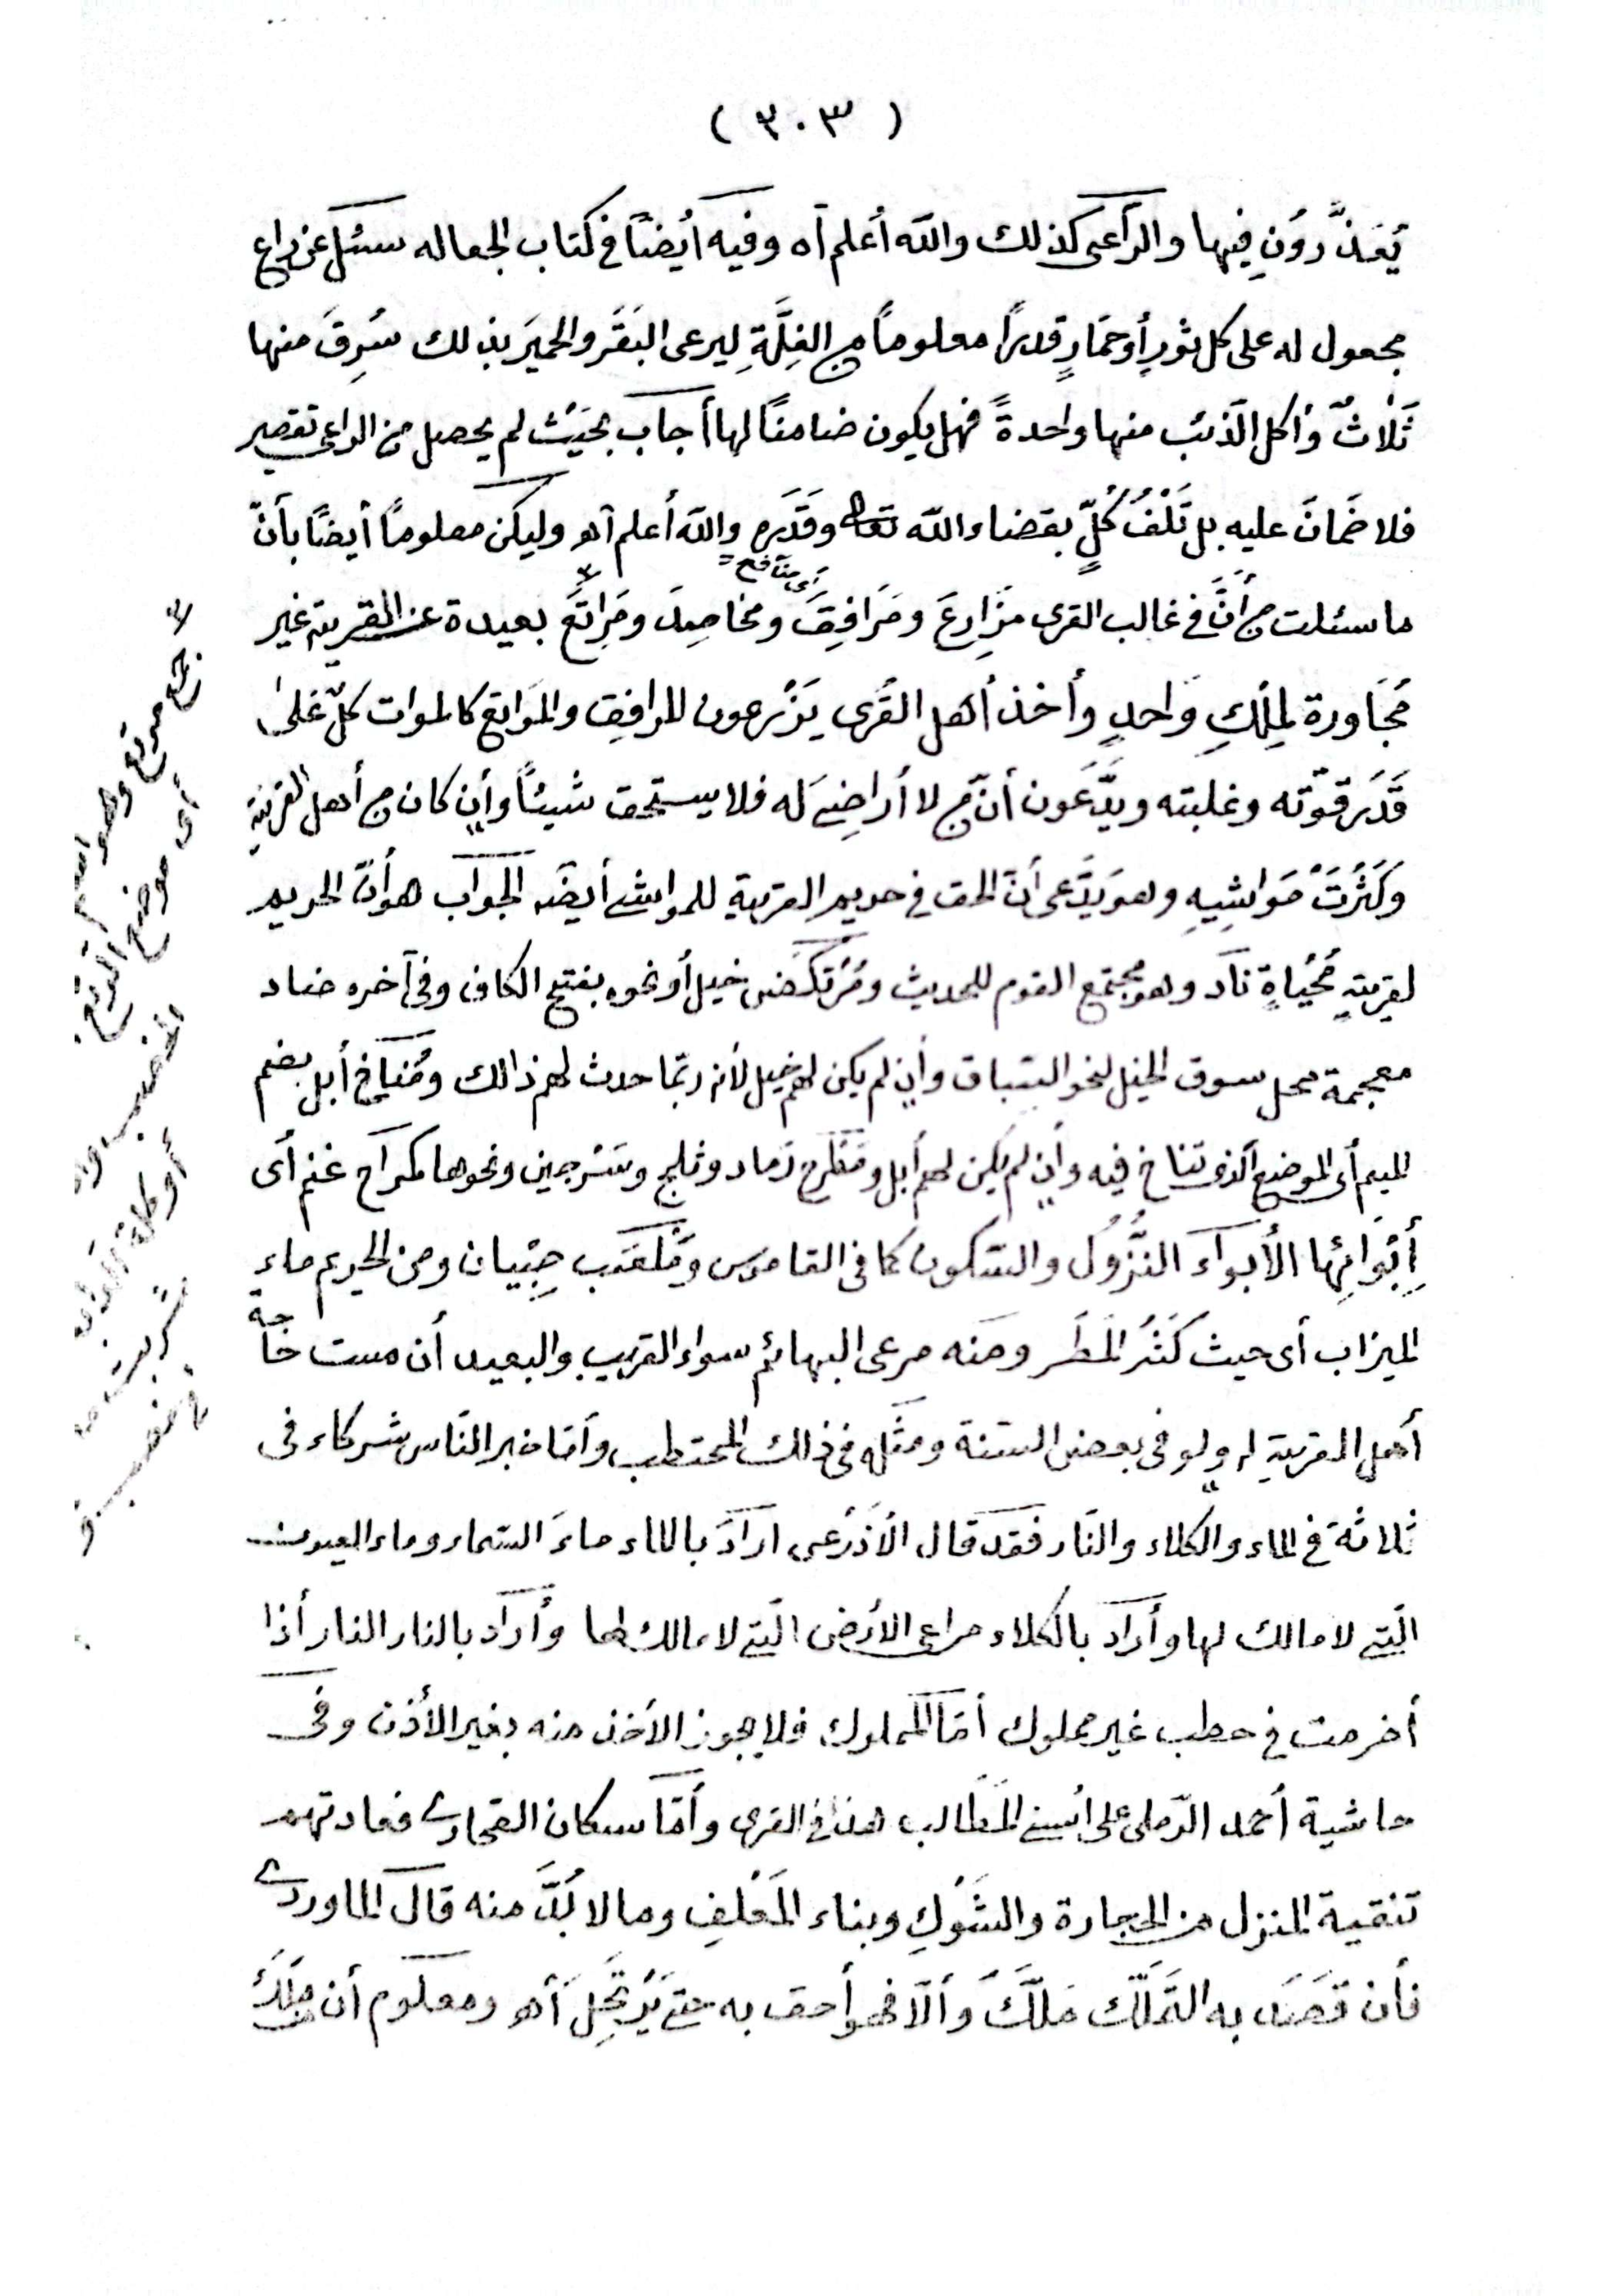 ( ٣٠٣ )
يُعَذَّرُونِ فيها والرّاعى كذلك والله أعلم آه وفيه أيضًا فى كتاب الجعاله سئل عن راع
مجعول له على كل ثورٍ أو حمَارٍ قدرًا معلومًا من الغِلَّةِ ليرعى البَقَرَ والحميَر بذلك سُرِقَ منها
ثَلٰاثٌ وأكل الذئب منها واحدةً فهل يكون ضامنًا لها أجاب بحَيْث لم يحصل من الراعى تقصير
فلا ضَمَانَ عليه بل تَلْفُ كُلٍّ بقضاء الله تعالى وقَدَره والله أعلم آه وليكن معلومًا أيضًا بأنّ
أى منافع
ما سئلت من أنَّ فى غالب القرى مَزَارِعَ ومَرَافِقَ ومخاصِدَ ومَرَاتِعَ بعيدة عن القرية غير
مُجَاورة لِمِلْكِ وَاحدٍ وأخذ أهل القُرى يَزْرعون المرافِق والمَرَاتِع كالموات كلّ على
قَدَر قوّته وغلبته ويدَّعُون أنّ من لا أراضِىَ له فلا يستحق شيئًا وأن كان من أهل القرية
وكَثُرَتْ مَوَاشِيهِ وهو يَدَّعى أنّ الحق فى حريم القرية للمواشى أيضًا الجواب هو أنّ الحريم
لقريةٍ مُحْيَاةٍ نَادٍ وهو مجتمع القوم للحديث ومُرْتَكَضُ خيل أو نحوه بفتح الكاف وفى آخره ضاد
معجمة محل سوق الخيل لنحو السّباق وأن لم يكن لهم خيل لأنه ربّما حدث لهم ذالك ومُنَاخ أبل بضم
الميم أى الموضع الّذى تناخ فيه وأن لم يكن لهم أبل ومَطْرح رَماد وثلج وسَرجين ونحوها كمراح غنم أى
أِبْوَائِهَا الأبوَاءَ النُّزُول والسّكون كما فى القاموس ومَلْعَب صِبْيان ومن الحريم ماء
الميزاب أى حيث كَثُرَ المَطَر ومنه مرعى البهائم سواء القريب والبعيد أن مست حَاجة
أهل القرية له ولو فى بعض السّنة ومثله فى ذلك المحتطب وأمّا خبر النّاس شركاء فى
ثلاثة فى الماء والكلاء والنّار فقد قال الأذرَعى ارادَ بالماء ماءَ السّماء وماء العيون
الّتى لا مالك لها وأراد بالكلاء مراعى الأرض الّتى لا مالك لها وأراد بالنار النار أذا
أضرمت فى حطب غير مملوك أمّا المملوك فلا يجوز الأخذ منه بغير الأذن وفى
حاشية أحمد الرّملى على أسنى المَطَالب هذا فى القرى وأمّا سكان الصّحارى فعادتهم
تنقية المنزل من الحجارة والشَوْكِ وبناء المَعْلَفِ وما لا بُدَّ منه قال الماوردى
فأن قَصَدَ به التَّمَلّكَ مَلَكَ وألّا فهو أحق به حتى يَرْتَحِلَ أه ومعلوم أن مِلْكَ
جمع مرتع وهو اسم
أى موضع الرتع